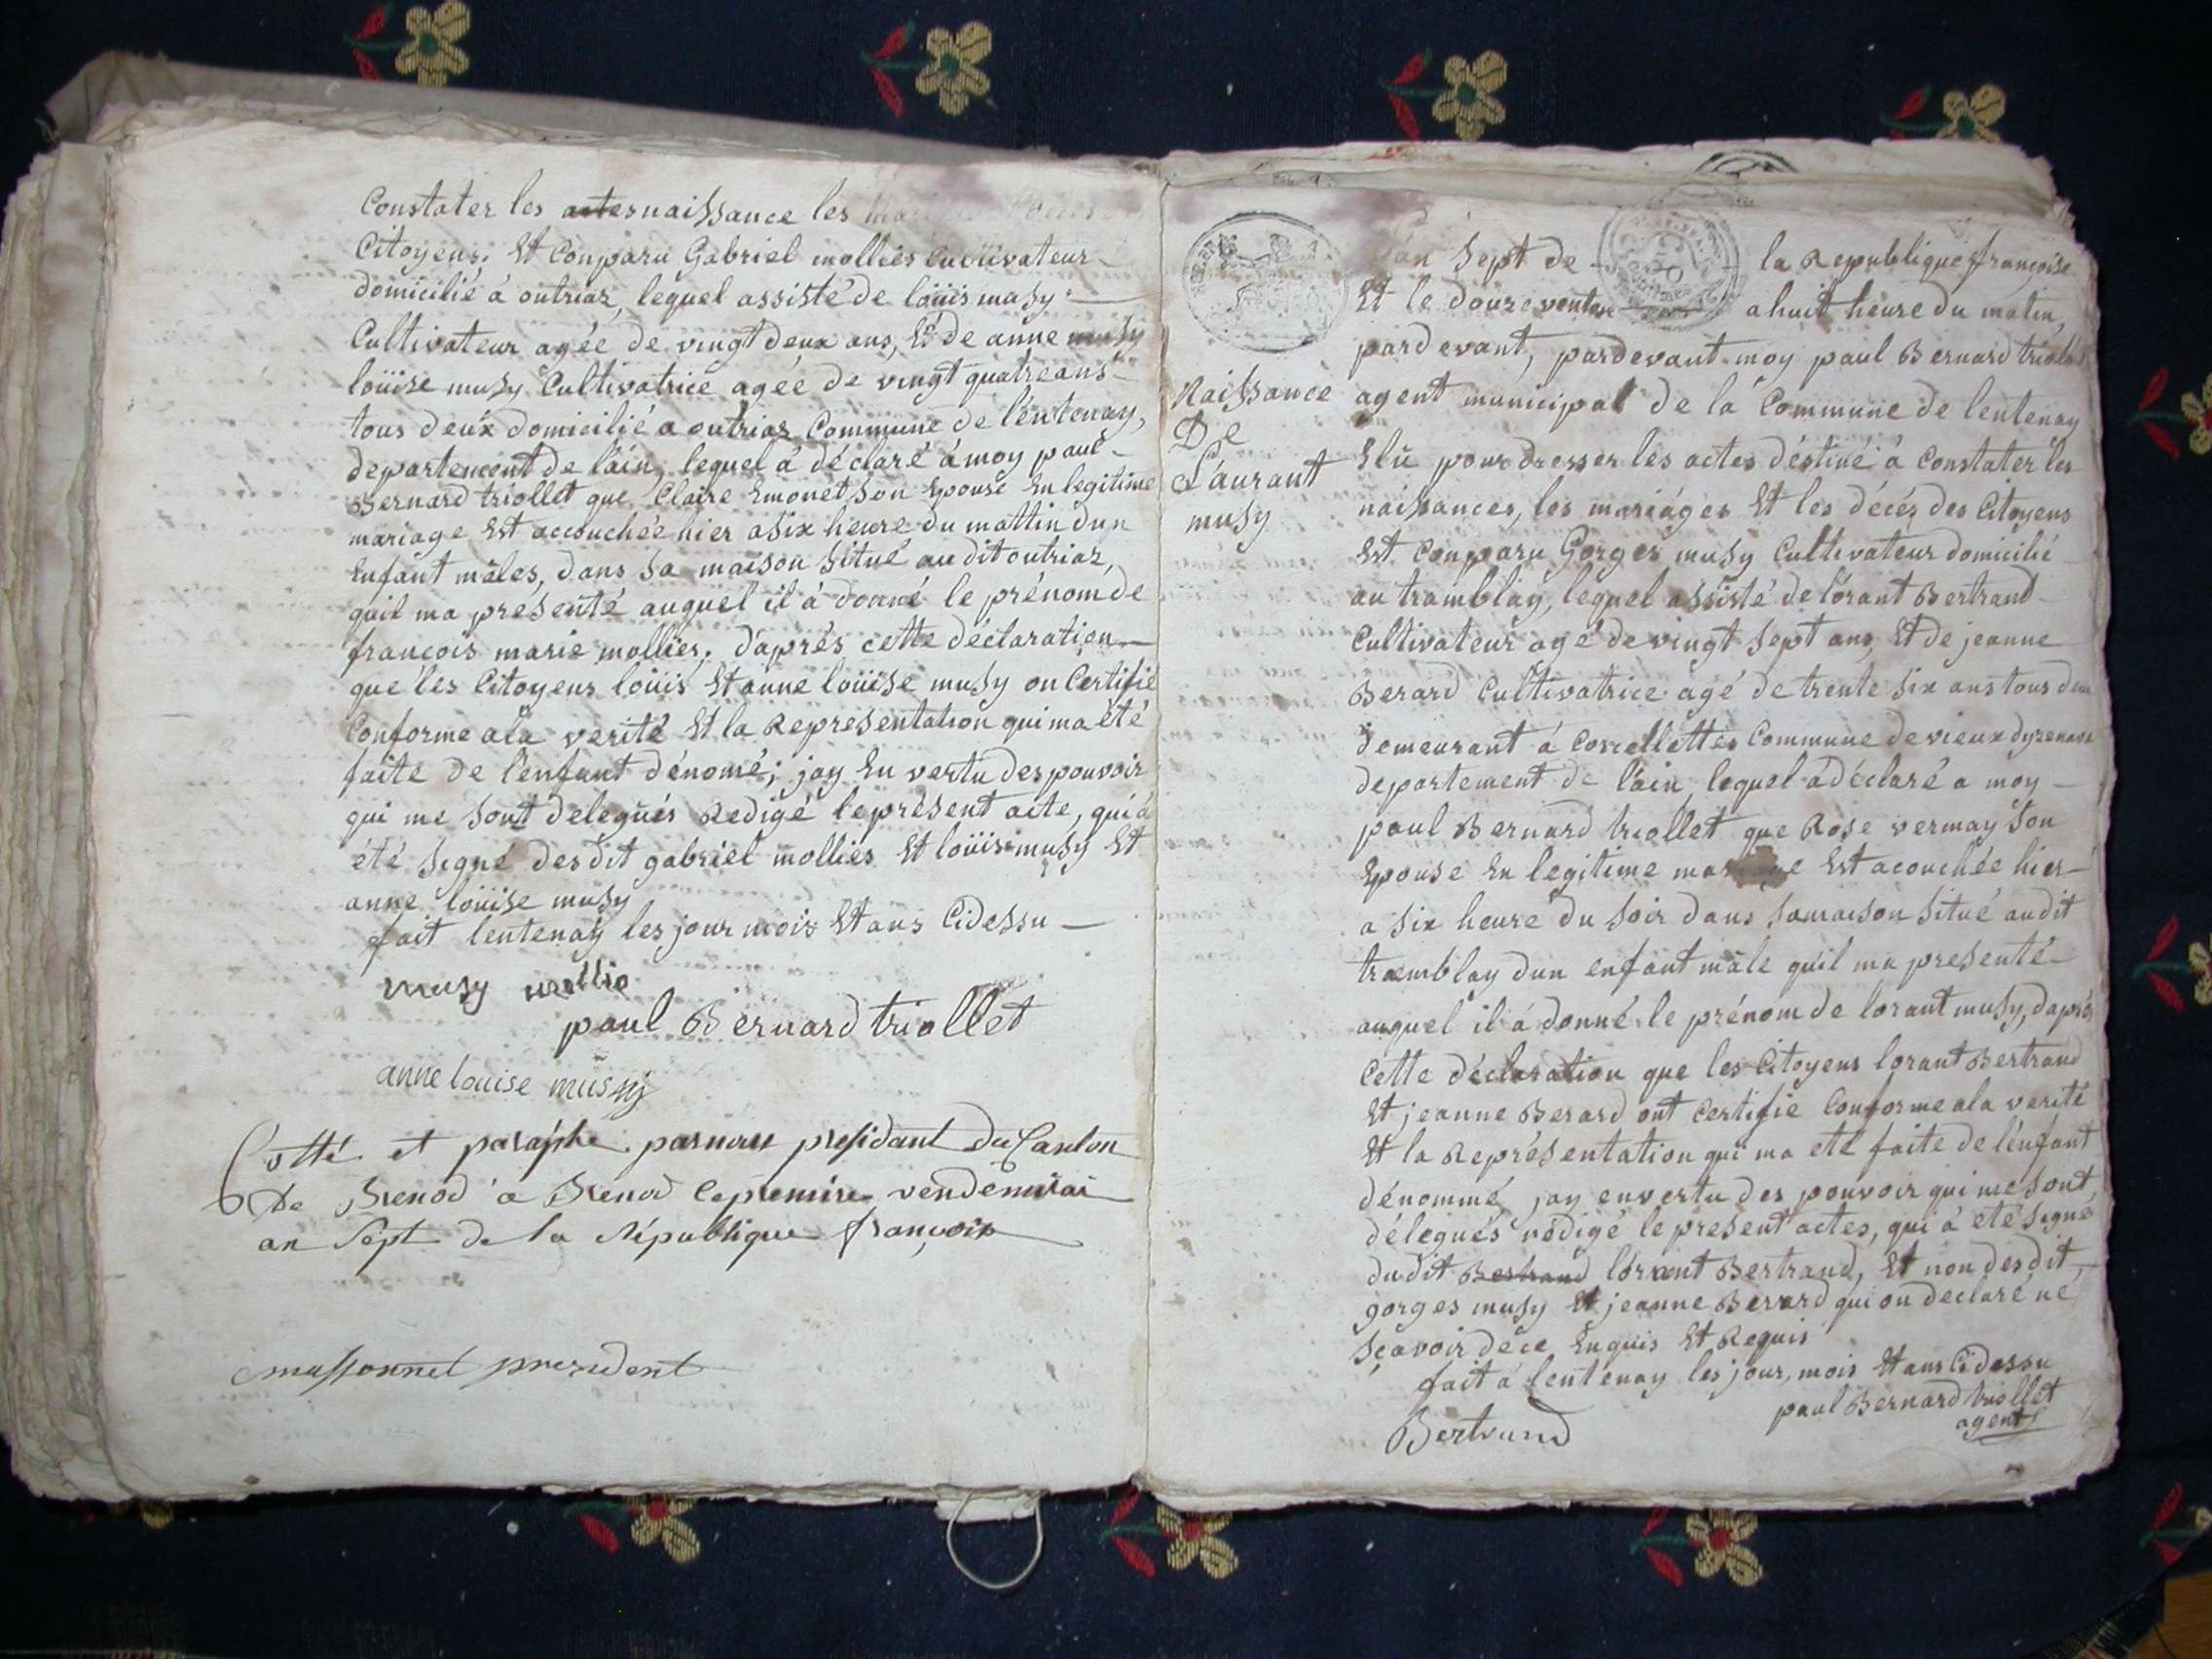 Constater les actes naissance les
Citoyens. Et Conparu Gabriel molliés Cultivateur
domicilié à outriaz, lequel assisté de loüis musy
Cultivateur agée de vingt deux ans, Et de anne musy
loüise musy Cultivatrice agée de vingt quatre ans
tous deux domicilié a outriaz Commune de lentenay,
departement de láin, lequel á déclaré á moy paul
Bernard triollet que Claire Emonet son Epouse En legitime
mariage Est accouchée hier a six heure du mattin dun
Enfant mâles, dans sa maison situé au dit outriaz,
quil ma presenté auquel il á donné le prénom de
françois marie mollies. d'aprés cette déclaration
que les Citoyens loüis Et anne loüise musy on Certifié
Conforme ala verité Et la Representation qui ma été
faite de lenfant dénomé; jay En vertu des pouvoir
qui me sont delegués Redigé le présent acte, qui á
été signé des dit gabriel mollies Et loüis musy Et
anne loüise musy
fait lentenay les jour mois Et ans Cidessu
musy mollie
paul Bernard triollet
anne louise mussy
Cotté et paraphé par nous presidant du Canton
de Brenod a Brenod le premier vendemiai
an Sept de la République françois
massonnet president
L'an Sept de la Republique françoise
Et le douze ventose a huit heure du matin,
pardevant, pardevant moy paul Bernard triolet
Naissance
De
Laurant
musy
agent municipal de la Commune de lentenay
Elü pour dresser les actes déstiné á Constater les
naissances, les mariáges Et les décés des Citoyens
Est Conparu Gorges musy Cultivateur domicilié
au tramblay, lequel assisté de lorant Bertrand
Cultivateur agé de vingt sept ans Et de jeanne
Berard Cultivatrice agé de trente six ans tous deux
demeurant á Corcellettes Commune de vieux dyzenave
departement de láin, lequel á déclaré a moy
paul Bernard triollet que Rose vermay son
Epouse En legitime mariage Est acouchée hier
a six heure du soir dans sa maison situé audit
traemblay dun enfant mâle quil ma presenté
auquel il á donné le prénom de lorant musy, d'aprés
Cette déclaration que les Citoyens lorant Bertrand
Et jeanne Berard ont Certifie Conforme ala verité
Et la Représentation qui ma eté faite de lénfant
dénommé, jay en vertu des pouvoir qui me sont
délegués rédigé le present actes, qui á eté signé
du dit Bertrand lorrant Bertrand, Et non des dit
gorges musy Et jeanne Berard qui on declaré ne
sçavoir de ce Enquis Et Requis
fait á lentenay les jour, mois Et ans Cidessu
paul Bernard triollet
agent
Bertrand